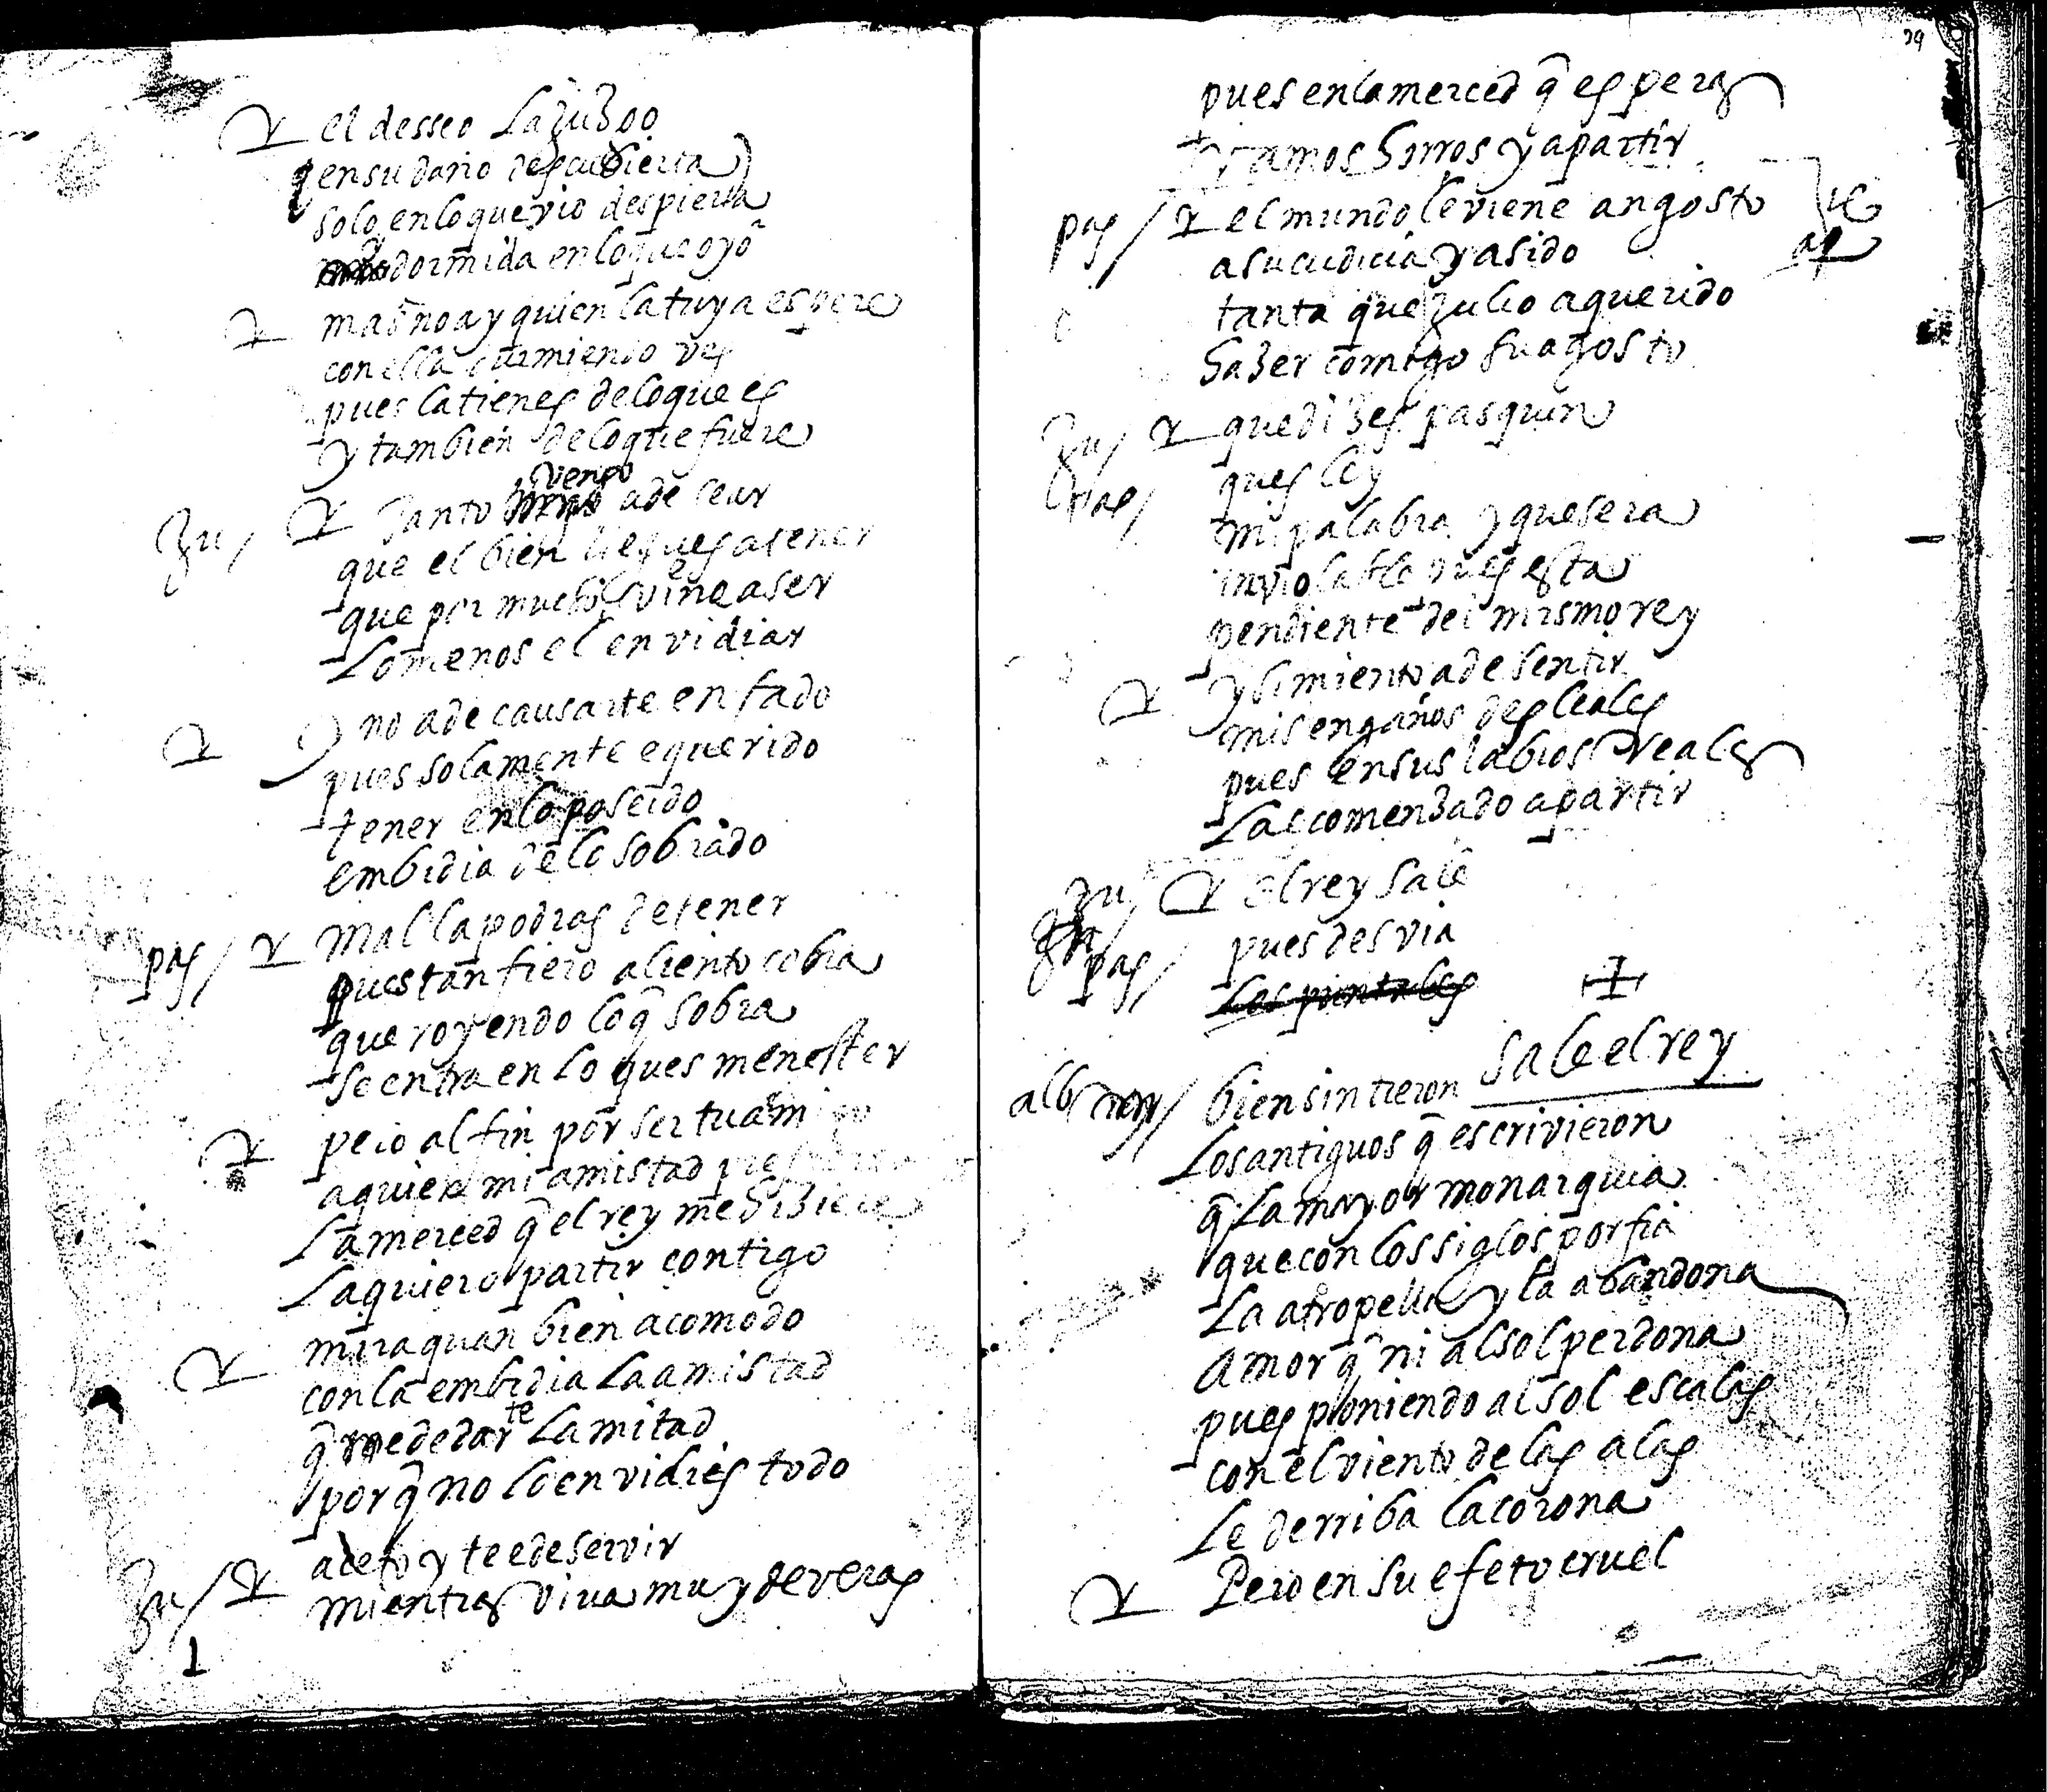 el desseo la juzgo
q en su dario descubierta
solo en lo que vio despierta
dormida en lo que oyo
mas no ay quien la tuya espere
con ella durmiendo ves
pues la tienes de lo que es
y tambien de lo que fuere
Ju/ Tanto viendo a de cear
que el bien llegues a tener
que por mucho viene a ser
lo menos el envidiar
y no a de causarte enfado
pues solamente e querido
tener en lo poseido
embidia de lo sobrado
pas/ Mal la podras detener
pues tan fiero aliento cobra
que royendo lo q̃ sobra
se entra en lo ques menester
pero al fin por ser tu amigo
a quien mi amistad
la merced q̃ el rey me hiziere
la quiero partir contigo
mira quan bien acomodo
con la embidia la amistad
q̃ e de darte la mitad
porq̃ no lo envidies todo
Ju/ aceto y te e de servir
mientras viva muy de veras
1
39
pues en la merced q̃ esperas
vamos horros y a partir
pas/ el mundo le viene angosto
a su cudicia y a sido
tanta que Julio a querido
hazer comigo su agosto
Ju/ que dizes pasquin
pas/ ques ley
mi palabra y que sera
inviolable pues esta
pendiente del mismo rey
y si miento a de sentir
mis engaños desleales
pues en sus labios reales
la e comenzado a partir
Ju/ el rey sale
pas/ pues desvia
sale el rey
alb rey/ bien sintieron
los antiguos q̃ escrivieron
q̃ la mayor monarquia
que con los siglos porfia
la atropella y la abandona
Amor q̃ ni al sol perdona
pues poniendo al sol escalas
con el viento de las alas
le derriba la corona
Pero en su efeto cruel